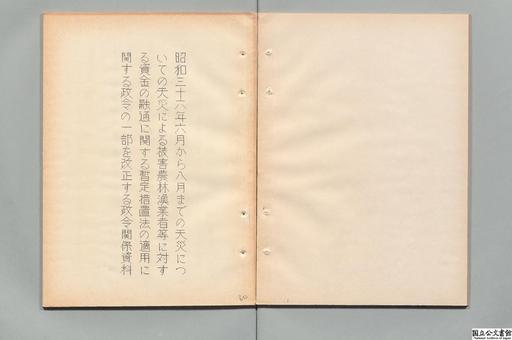 昭和三十六年六月から八月までの天災につ
いての天災による被害農林漁業者等に対す
る資金の融通に関する暫定措置法の適用に
関する政令の一部を改正する政令関係資料
国立公文書館
National Archives of Japan